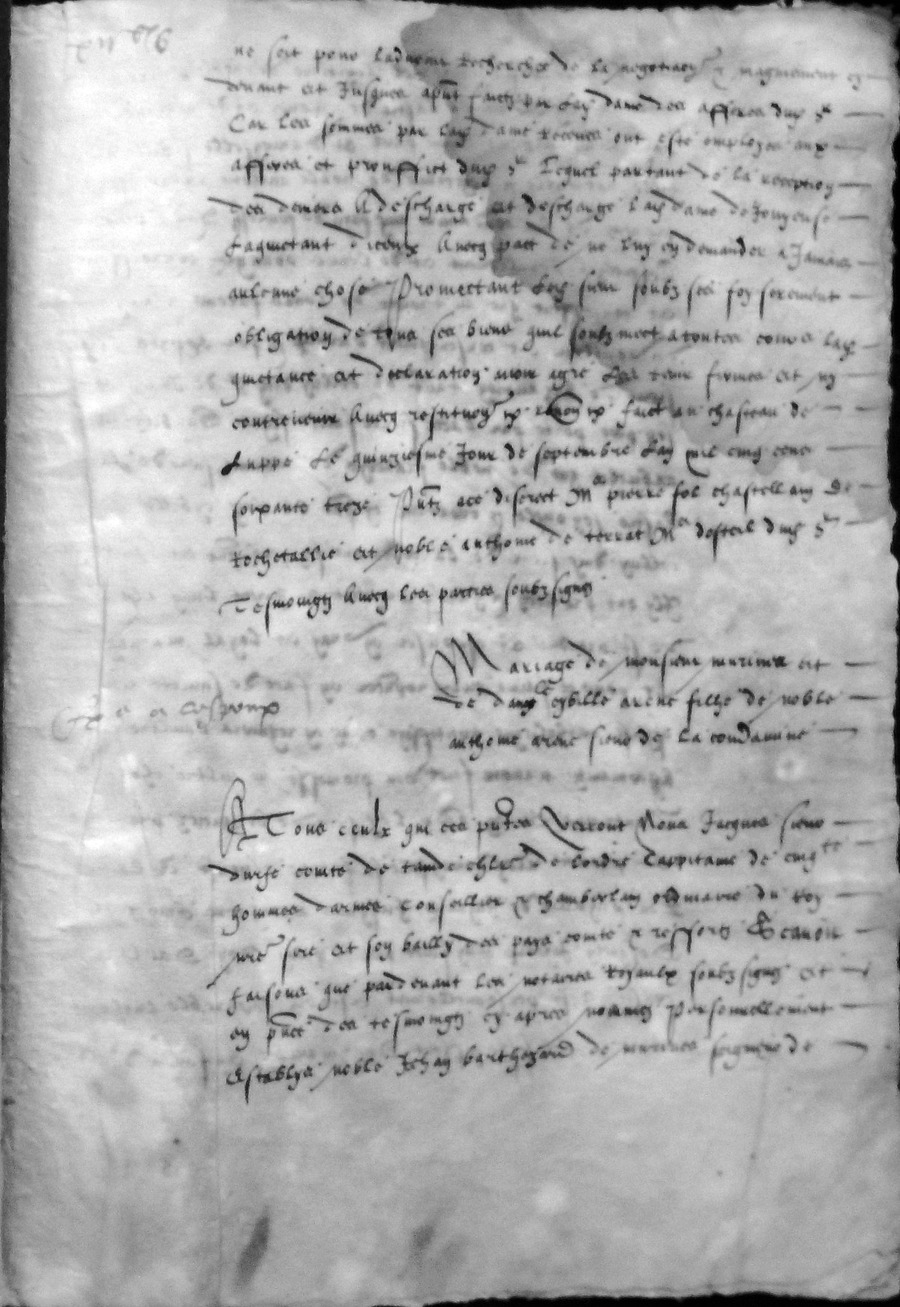 ne soit pour ladvenir Recherchee de la negotiaon & magniement cy
devant et Jusques apnt faictz par lad dame des affaires dud sr
Car les sommes par lad dame Receues ont este employees aux
afferes et prouffict dud sr Lequel partant de la reception
des deniers A descharge et descharge lad dame de Joyeuse
Laquictant diceulx Avecq pact de ne luy en demander a Jamais
aulcune chose Promectant led sieur soubz ses foy serement
obligation de tous ses biens quil soubzmect a toutes cours lad
quictance et declaration avoir agre les tenir fermes et ny
contrevenir Avecq restitution faict au chasteau de
Luppe Le quinziesme Jour de septembre Lan mil cinq cens
soixante treze Pntz ace discret Me pierre fol chastellain de
Rochetallie et noble anthoine de terrat Me dosteil dud sr
Tesmoingtz Avecq les parties soubzsignez
Mariage de monsieur murines et
de damle cybille arene filhe de noble
anthoine arene sieur de la condamine
A Tous ceulx qui ces pntes Verront Nous Jacques sieur
durfe comte de tande chlr de lordre Cappitaine de cinqte
hommes darmes Conseillier & chamberlan ordinaire du Roy
nre sire et son bailly des pays comte & ressortz Scavoir
faisons que pardevant les notaires Royaulx soubzsignez et
en pnce des tesmoingtz cy apres nommez Personnellement
Establys noble Jehan barthezard de murines seigneur de